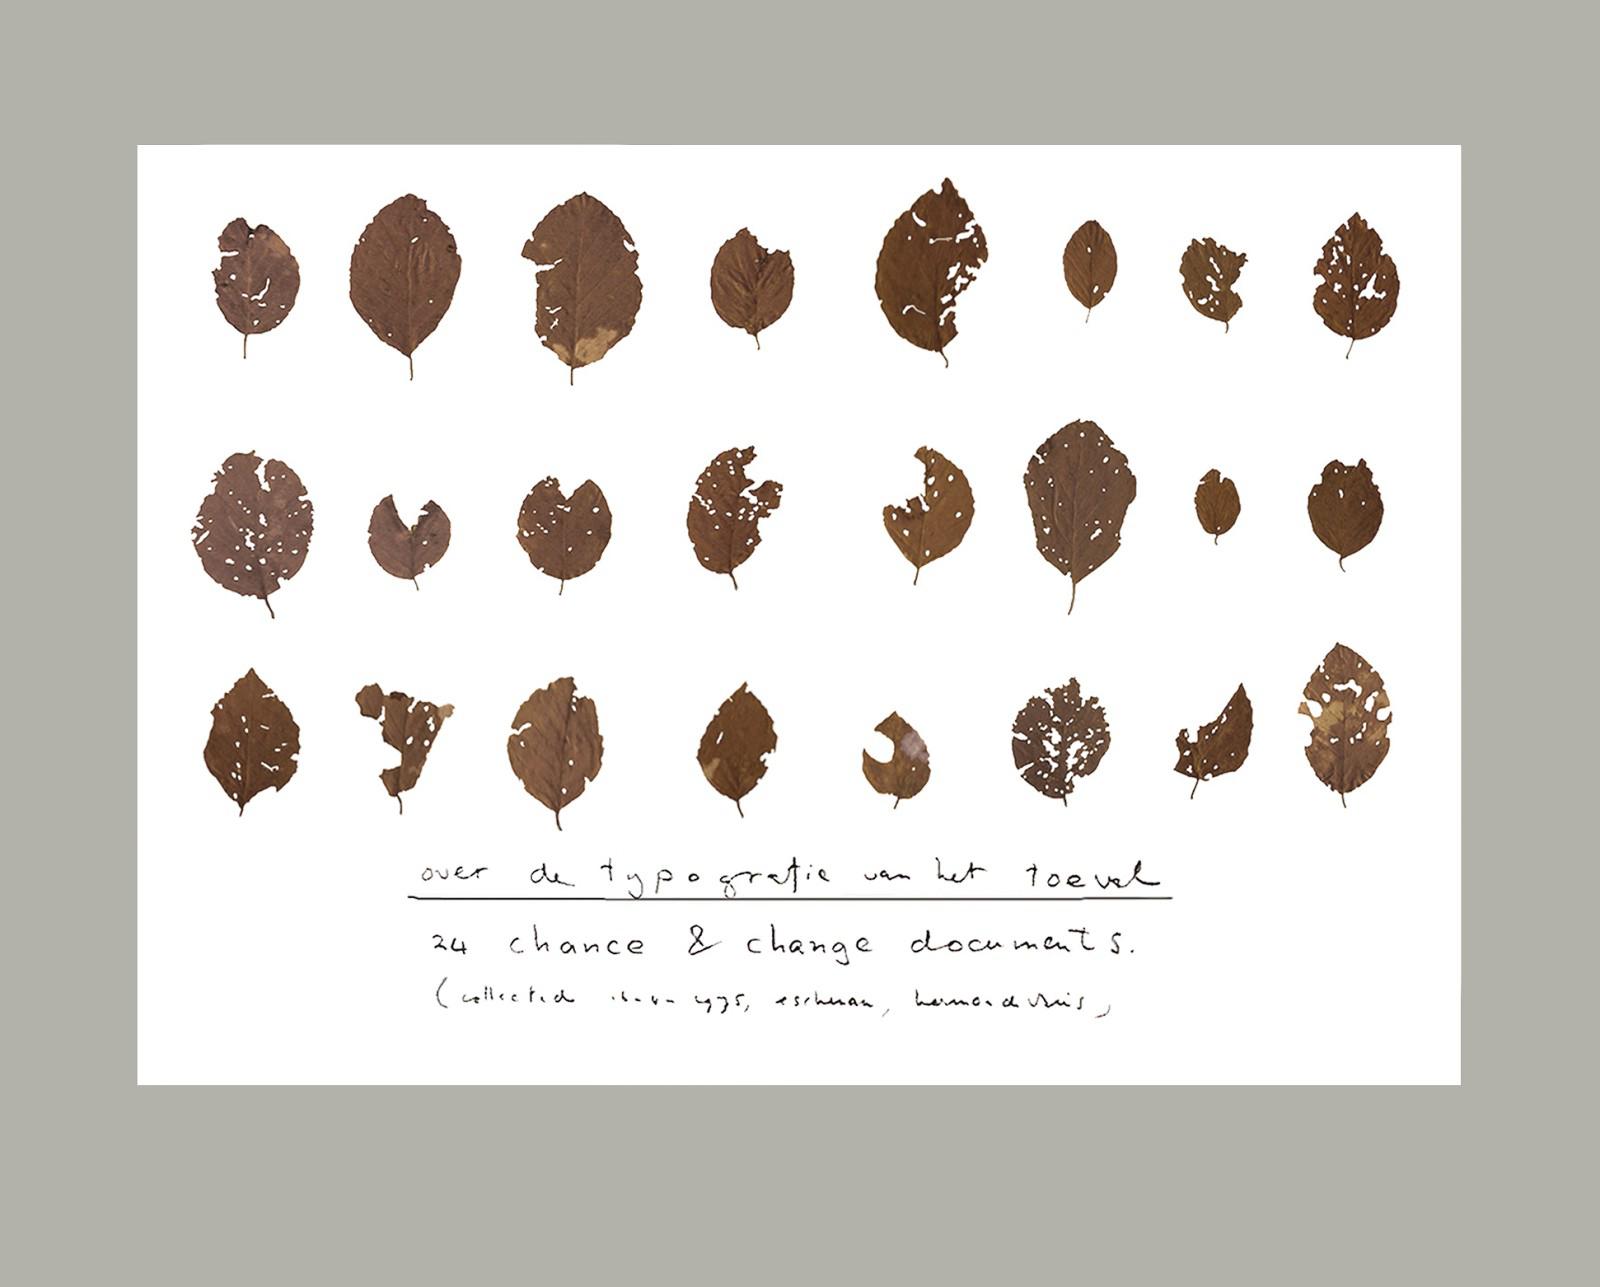 over de typografie van het toeval
24 chance & change documents.
(collected 1975, eschenau, herman de vries)